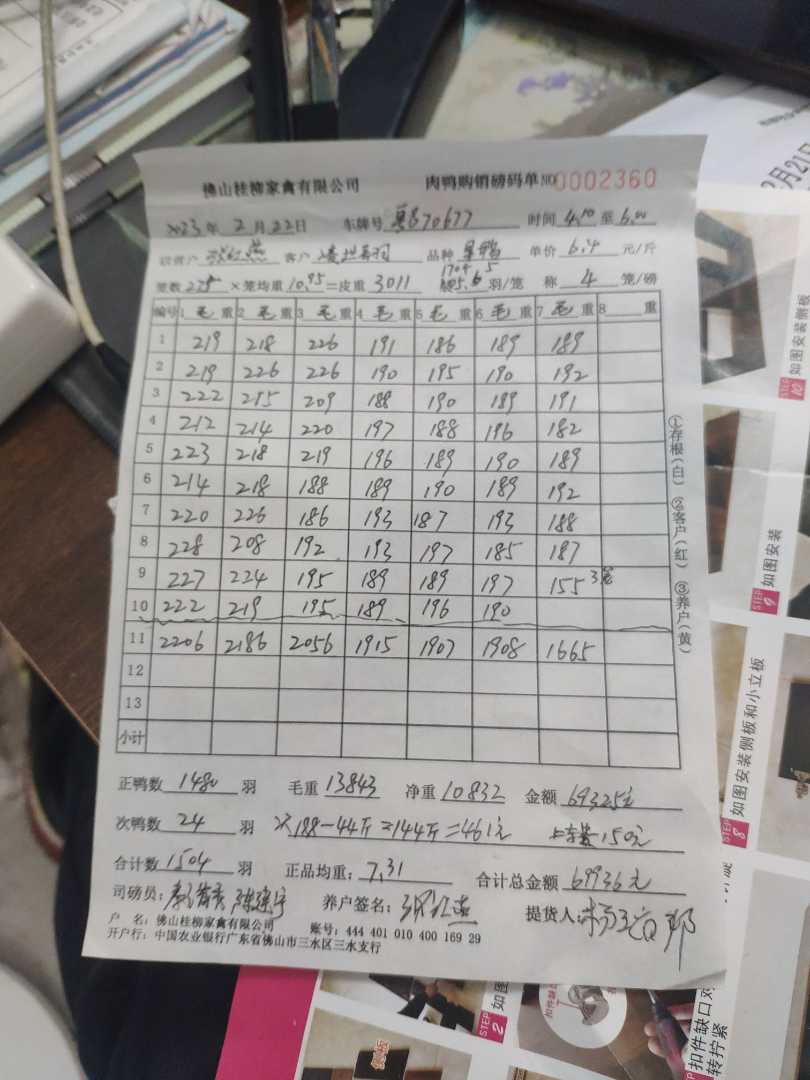 佛山桂柳家禽有限公司 肉鸭购销磅码单 NO 0002360
2023年2月22日 车牌号 时间 4.10 至 6.00
客户 品种 单价 6.4 元/斤
笼数 275 ×笼均重 10.95 =皮重 3011 羽/笼 称 4 笼/磅
编号 1 毛 重 2 毛 重 3 毛 重 4 毛 重 5 毛 重 6 毛 重 7 毛 重 8 重
1 219 218 226 191 186 189 189
2 219 226 226 190 195 190 192
3 222 215 209 188 190 189 191
4 212 214 220 197 188 196 182
5 223 218 219 196 189 190 189
6 214 218 188 189 190 189 192
7 220 226 186 193 187 193 188
8 228 208 192 193 197 185 187
9 227 224 195 189 189 197 155 3笼
10 222 219 195 189 196 190
11 2206 2186 2056 1915 1907 1908 1665
12
13
小计
①存根(白) ②客户(红) ③养户(黄)
正鸭数 1480 羽 毛重 13843 净重 10832 金额 69325元
次鸭数 24 羽 次188-44斤=144斤=461元 150元
合计数 1504 羽 正品均重: 7.31 合计总金额 69936元
司磅员: 养户签名: 提货人:
户 名: 佛山桂柳家禽有限公司 账号: 444 401 010 400 169 29
开户行: 中国农业银行广东省佛山市三水区三水支行
2月21日
STEP 10 如图安装侧板
STEP 9 如图安装
STEP 8 如图安装侧板和小立板
STEP 2
扣件缺口对
转拧紧